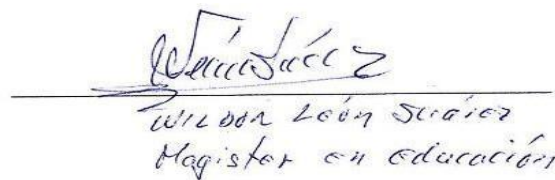 WILSON León Suárez
Magister en educación